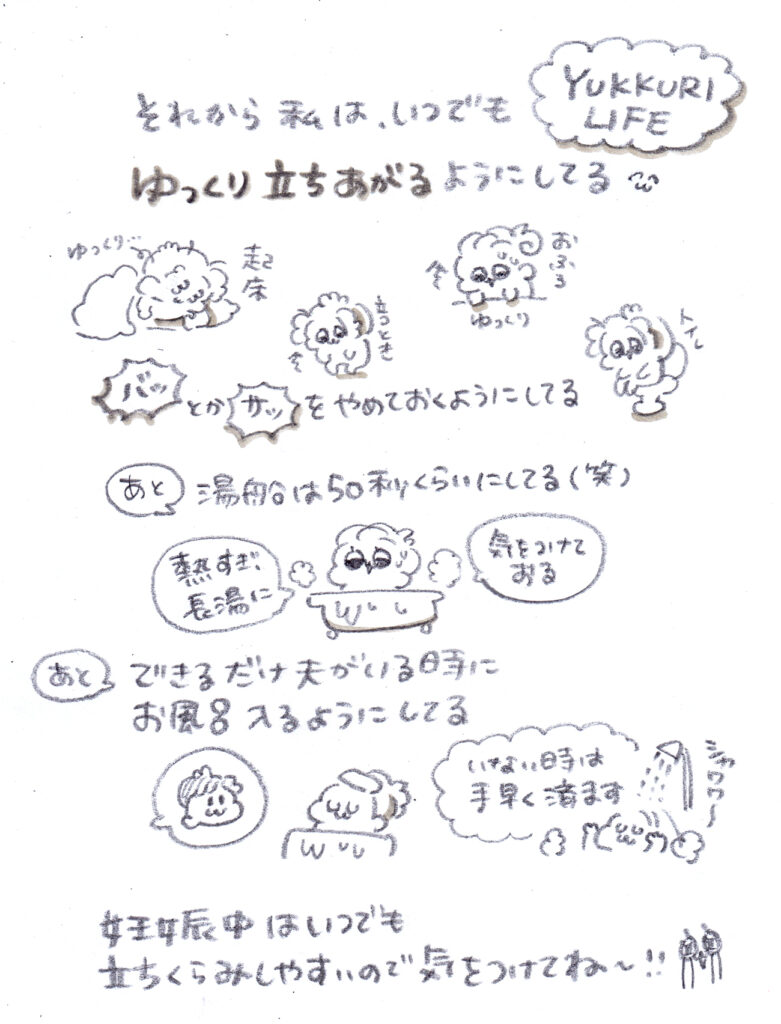 YUKKURI
LIFE
それから 私は、いつでも
ゆっくり 立ちあがる ようにしてる
ゆっくり…
起床
立つとき
おふろ
ゆっくり
トイレ
バッ とか サッ を やめておくようにしてる
あと 湯船は50秒くらいにしてる(笑)
熱すぎ、
長湯に
気をつけて
おる
あと できるだけ夫がいる時に
お風呂 入るようにしてる
いない時は
手早く済ます
シャワワ〜
妊娠中はいつでも
立ちくらみしやすいので気をつけてね〜!!